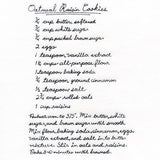 Oatmeal Raisin Cookies
¾ cup butter, softened
¾ cup white sugar
¾ cup packed brown sugar
2 eggs
1 teaspoon vanilla extract
1¼ cups all-purpose flour
1 teaspoon baking soda
¾ teaspoon ground cinnamon
½ teaspoon salt
2¾ cups rolled oats
1 cup raisins
Preheat oven to 375°. Mix butter, white
sugar, and brown sugar until smooth.
Mix flour, baking soda, cinnamon, eggs,
vanilla extract, and salt in to
butter mixture. Stir in oats and raisins.
Bake 8-10 minutes until browned.